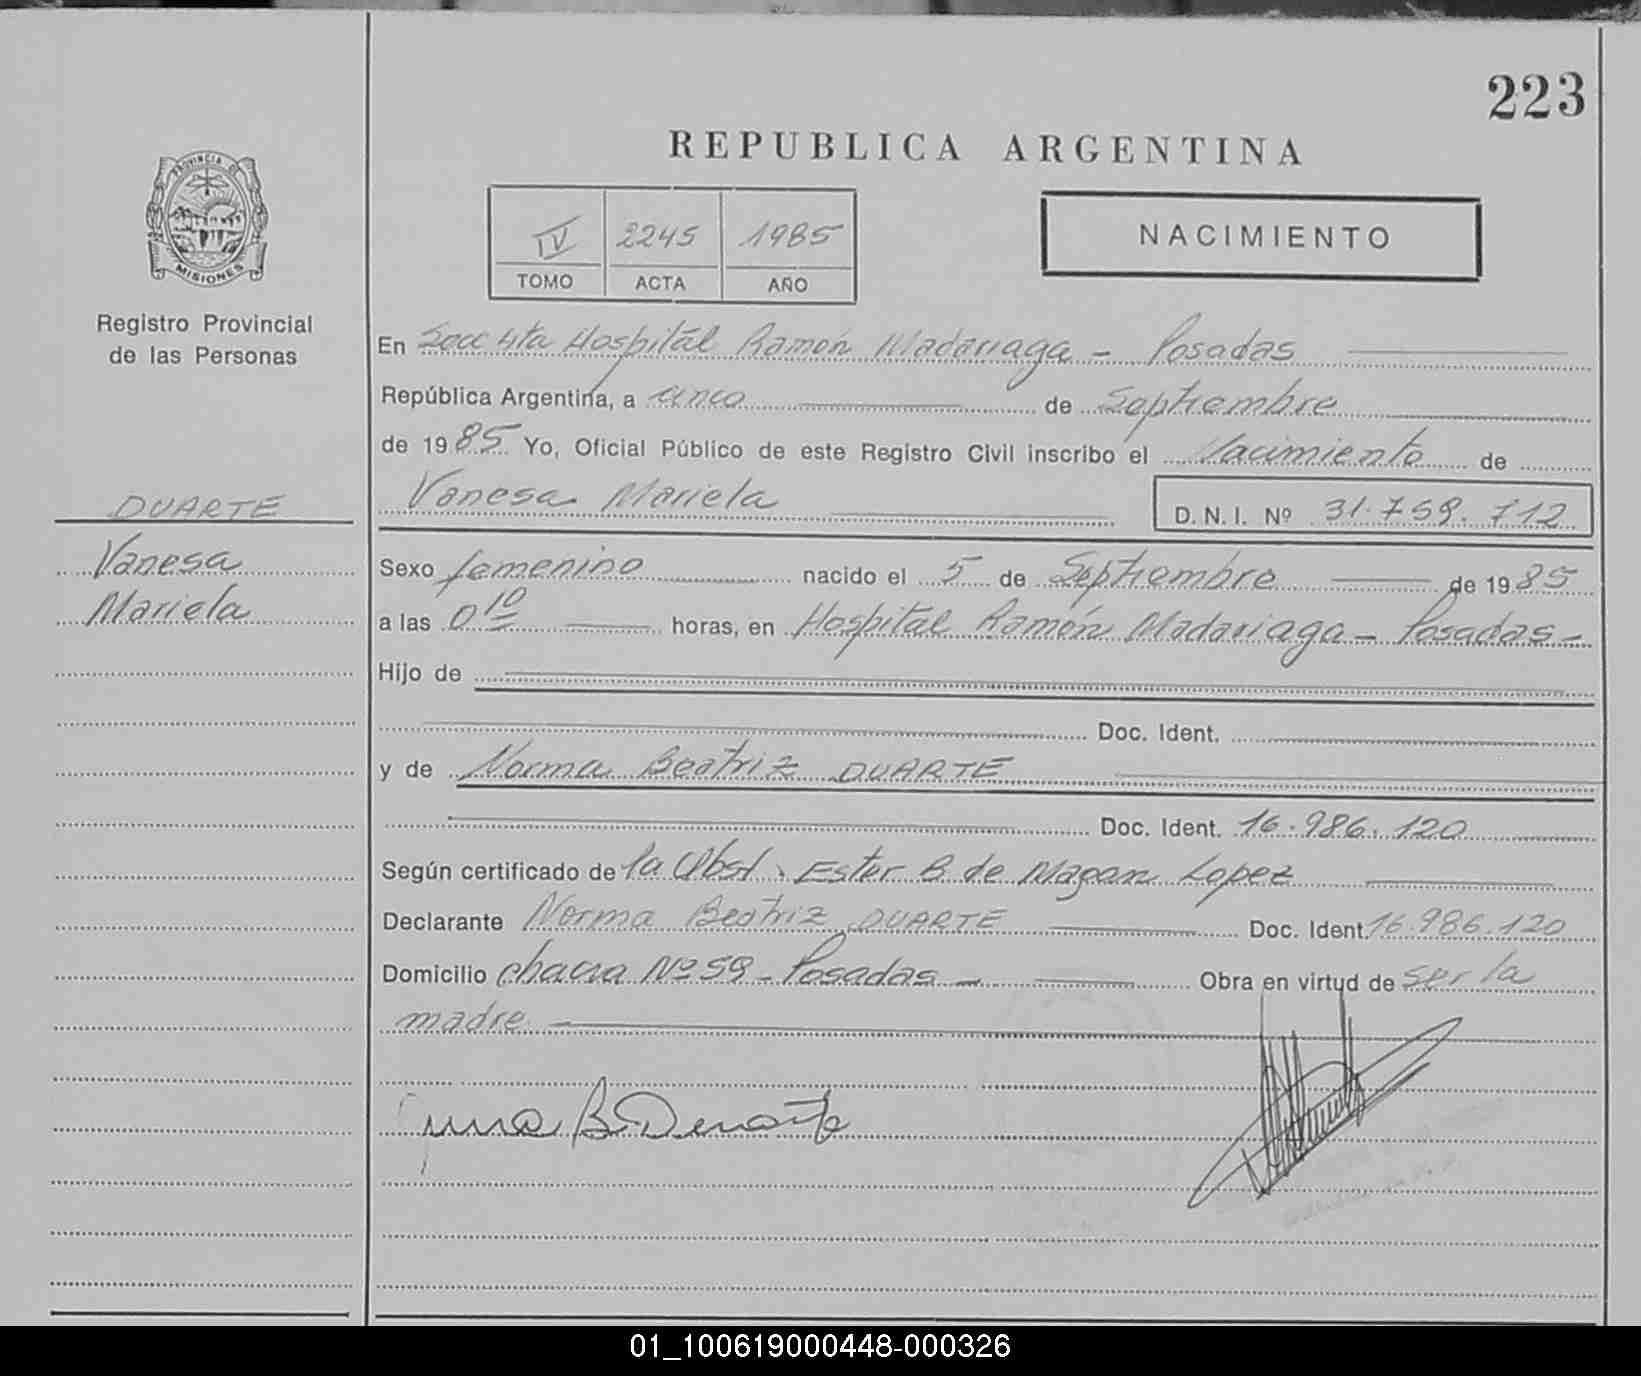 223
REPUBLICA ARGENTINA
PROVINCIA DE
MISIONES
Registro Provincial
de las Personas
IV 2245 1985
TOMO ACTA AÑO
NACIMIENTO
En Secc 4ta Hospital Ramón Madariaga - Posadas
República Argentina, a cinco de Septiembre
de 1985 Yo, Oficial Público de este Registro Civil inscribo el Nacimiento de
Vanesa Mariela D. N. I. Nº 31.759.712
DUARTE
Vanesa
Mariela
Sexo femenino nacido el 5 de Septiembre de 1985
a las 0 10 horas, en Hospital Ramón Madariaga - Posadas -
Hijo de
Doc. Ident.
y de Norma Beatriz DUARTE
Doc. Ident. 16.986.120
Según certificado de la Obst. Ester B de Magan Lopez
Declarante Norma Beatriz DUARTE Doc. Ident. 16.986.120
Domicilio chacra Nº 59 - Posadas - Obra en virtud de ser la
madre
01_100619000448-000326